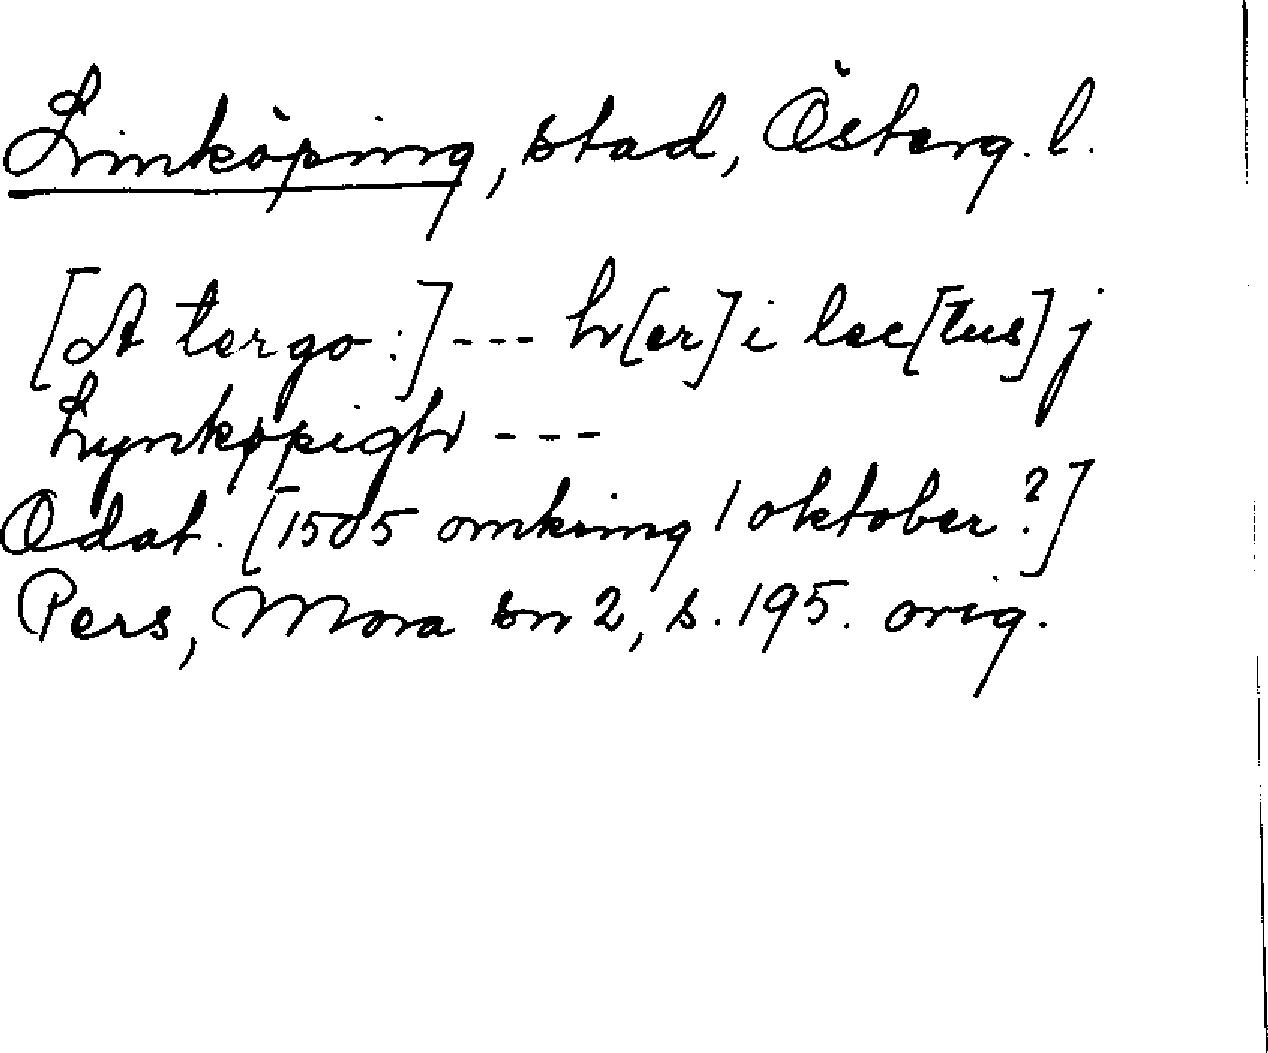 Linköping, stad, Österg. l.
[A tergo:] --- h[er] i lec[tus] j
Lynkøpigh ---
Odat. [1505 omkring 1 oktober?]
Pers, Mora sn 2, s. 195. orig.